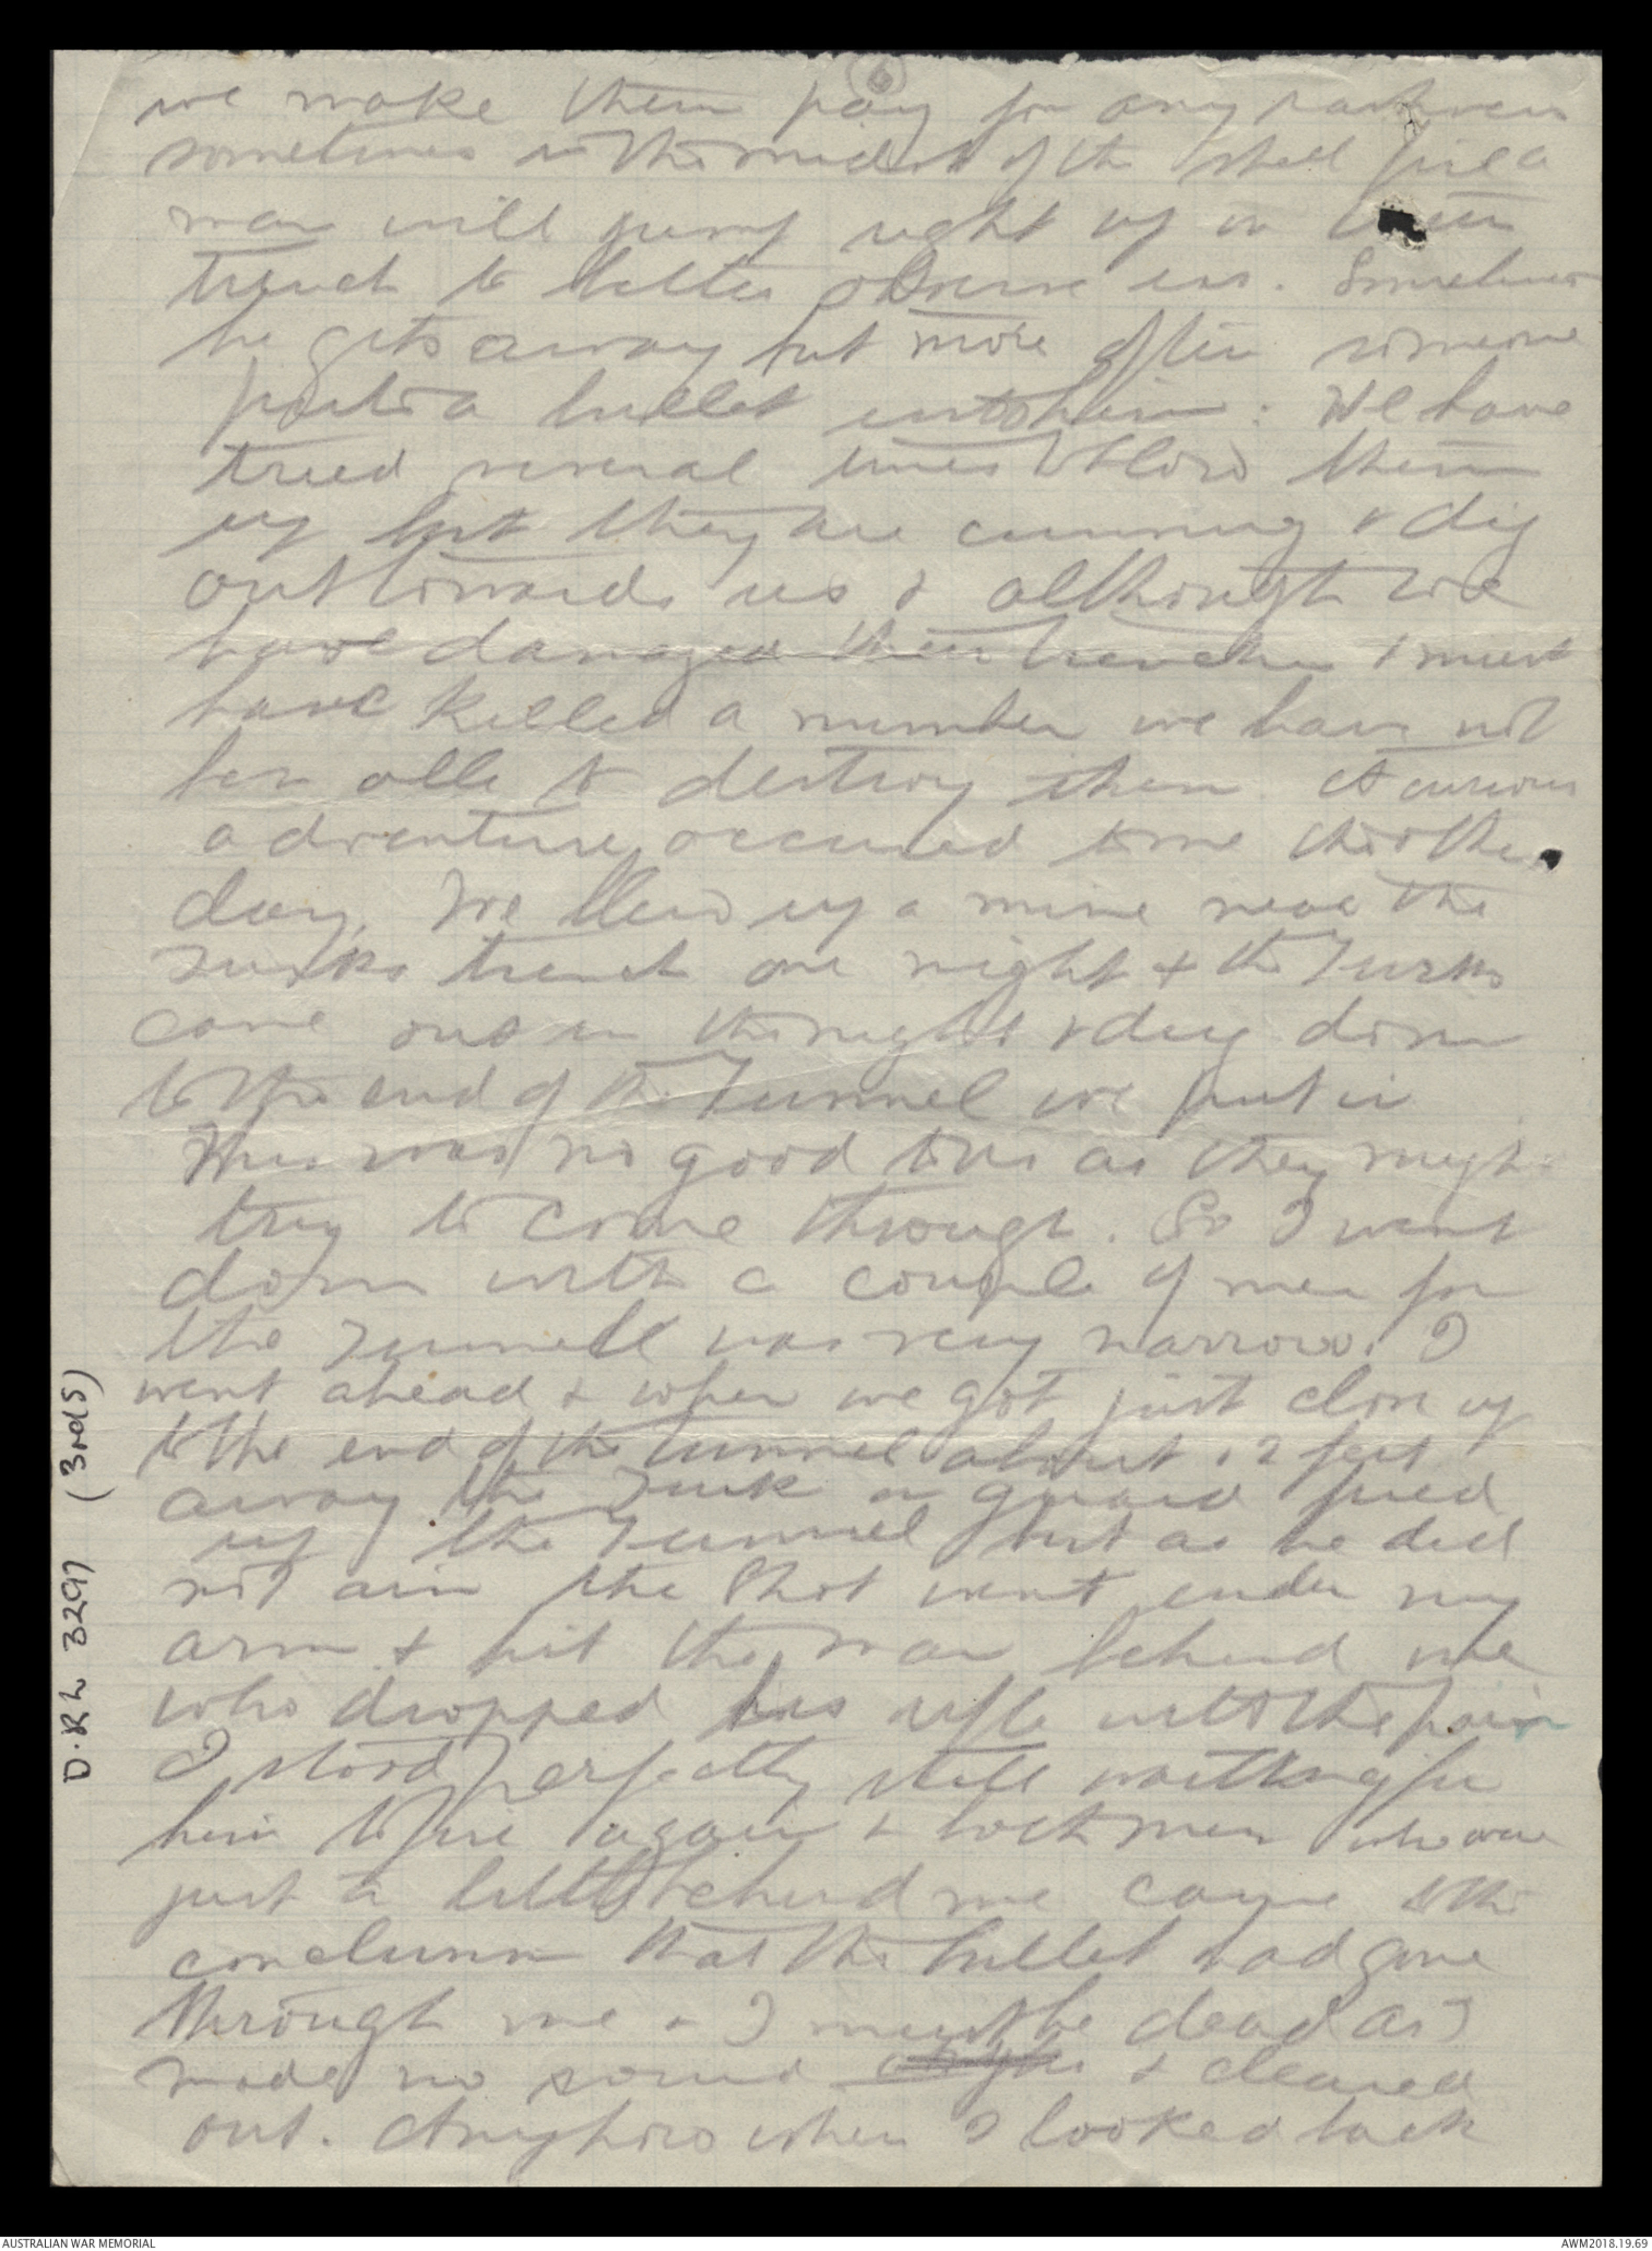 6
we make them pay for any rashness
sometimes in the midst of the shell fire a
man will jump right up on the
trench to better observe us. Sometimes
he gets away but more often someone
puts a bullet into him. We have
tried several times to blow them
up but they are cunning & dig
out towards us & although we
have damaged their trenches & must
have killed a number we have not
ben able to destroy them. A curious
adventure occured to me the other
day. We blew up a mine near the
Turks trench one night & the Turks
came out in the night & dug down
to the end of the Tunnel we put in
This was no good to us as they might
try to come through. So I went
down with a couple of men for
the Tunnell was very narrow. I
went ahead & when we got just close up
to the end of the tunnel about 12 feet
away the Turk on guard fired
up the Tunnel but as he did
not aim the shot went under my
arm & hit the man behind me
who dropped his rifle with the pain
I stood perfectly still waiting for
him to fire again & both men who were
just a little behind me came to the
conclusion that the bullet had gone
through me & I must be dead as I
made no sound & cleared
out. Anyhow when I looked back
D.RL 3297 (3rdS)
AUSTRALIAN WAR MEMORIAL
AWM2018.19.69